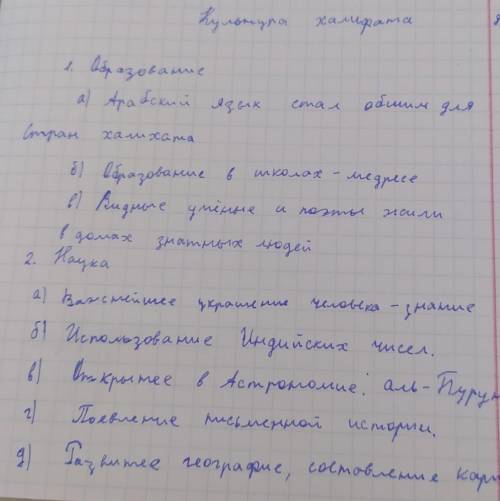 Культура халифата
1. Образование
а) Арабский язык стал общим для
стран халихата
б) Образование в школах - медресе
в) Видные учёные и поэты жили
в домах знатных людей
2. Наука
а) Важнейшее украшение человека - знание
б) Использование Индийских чисел.
в) Открытее в Астрономие: аль-Бируни
г) Появление письменной истории.
д) Развитее географие, составление кар